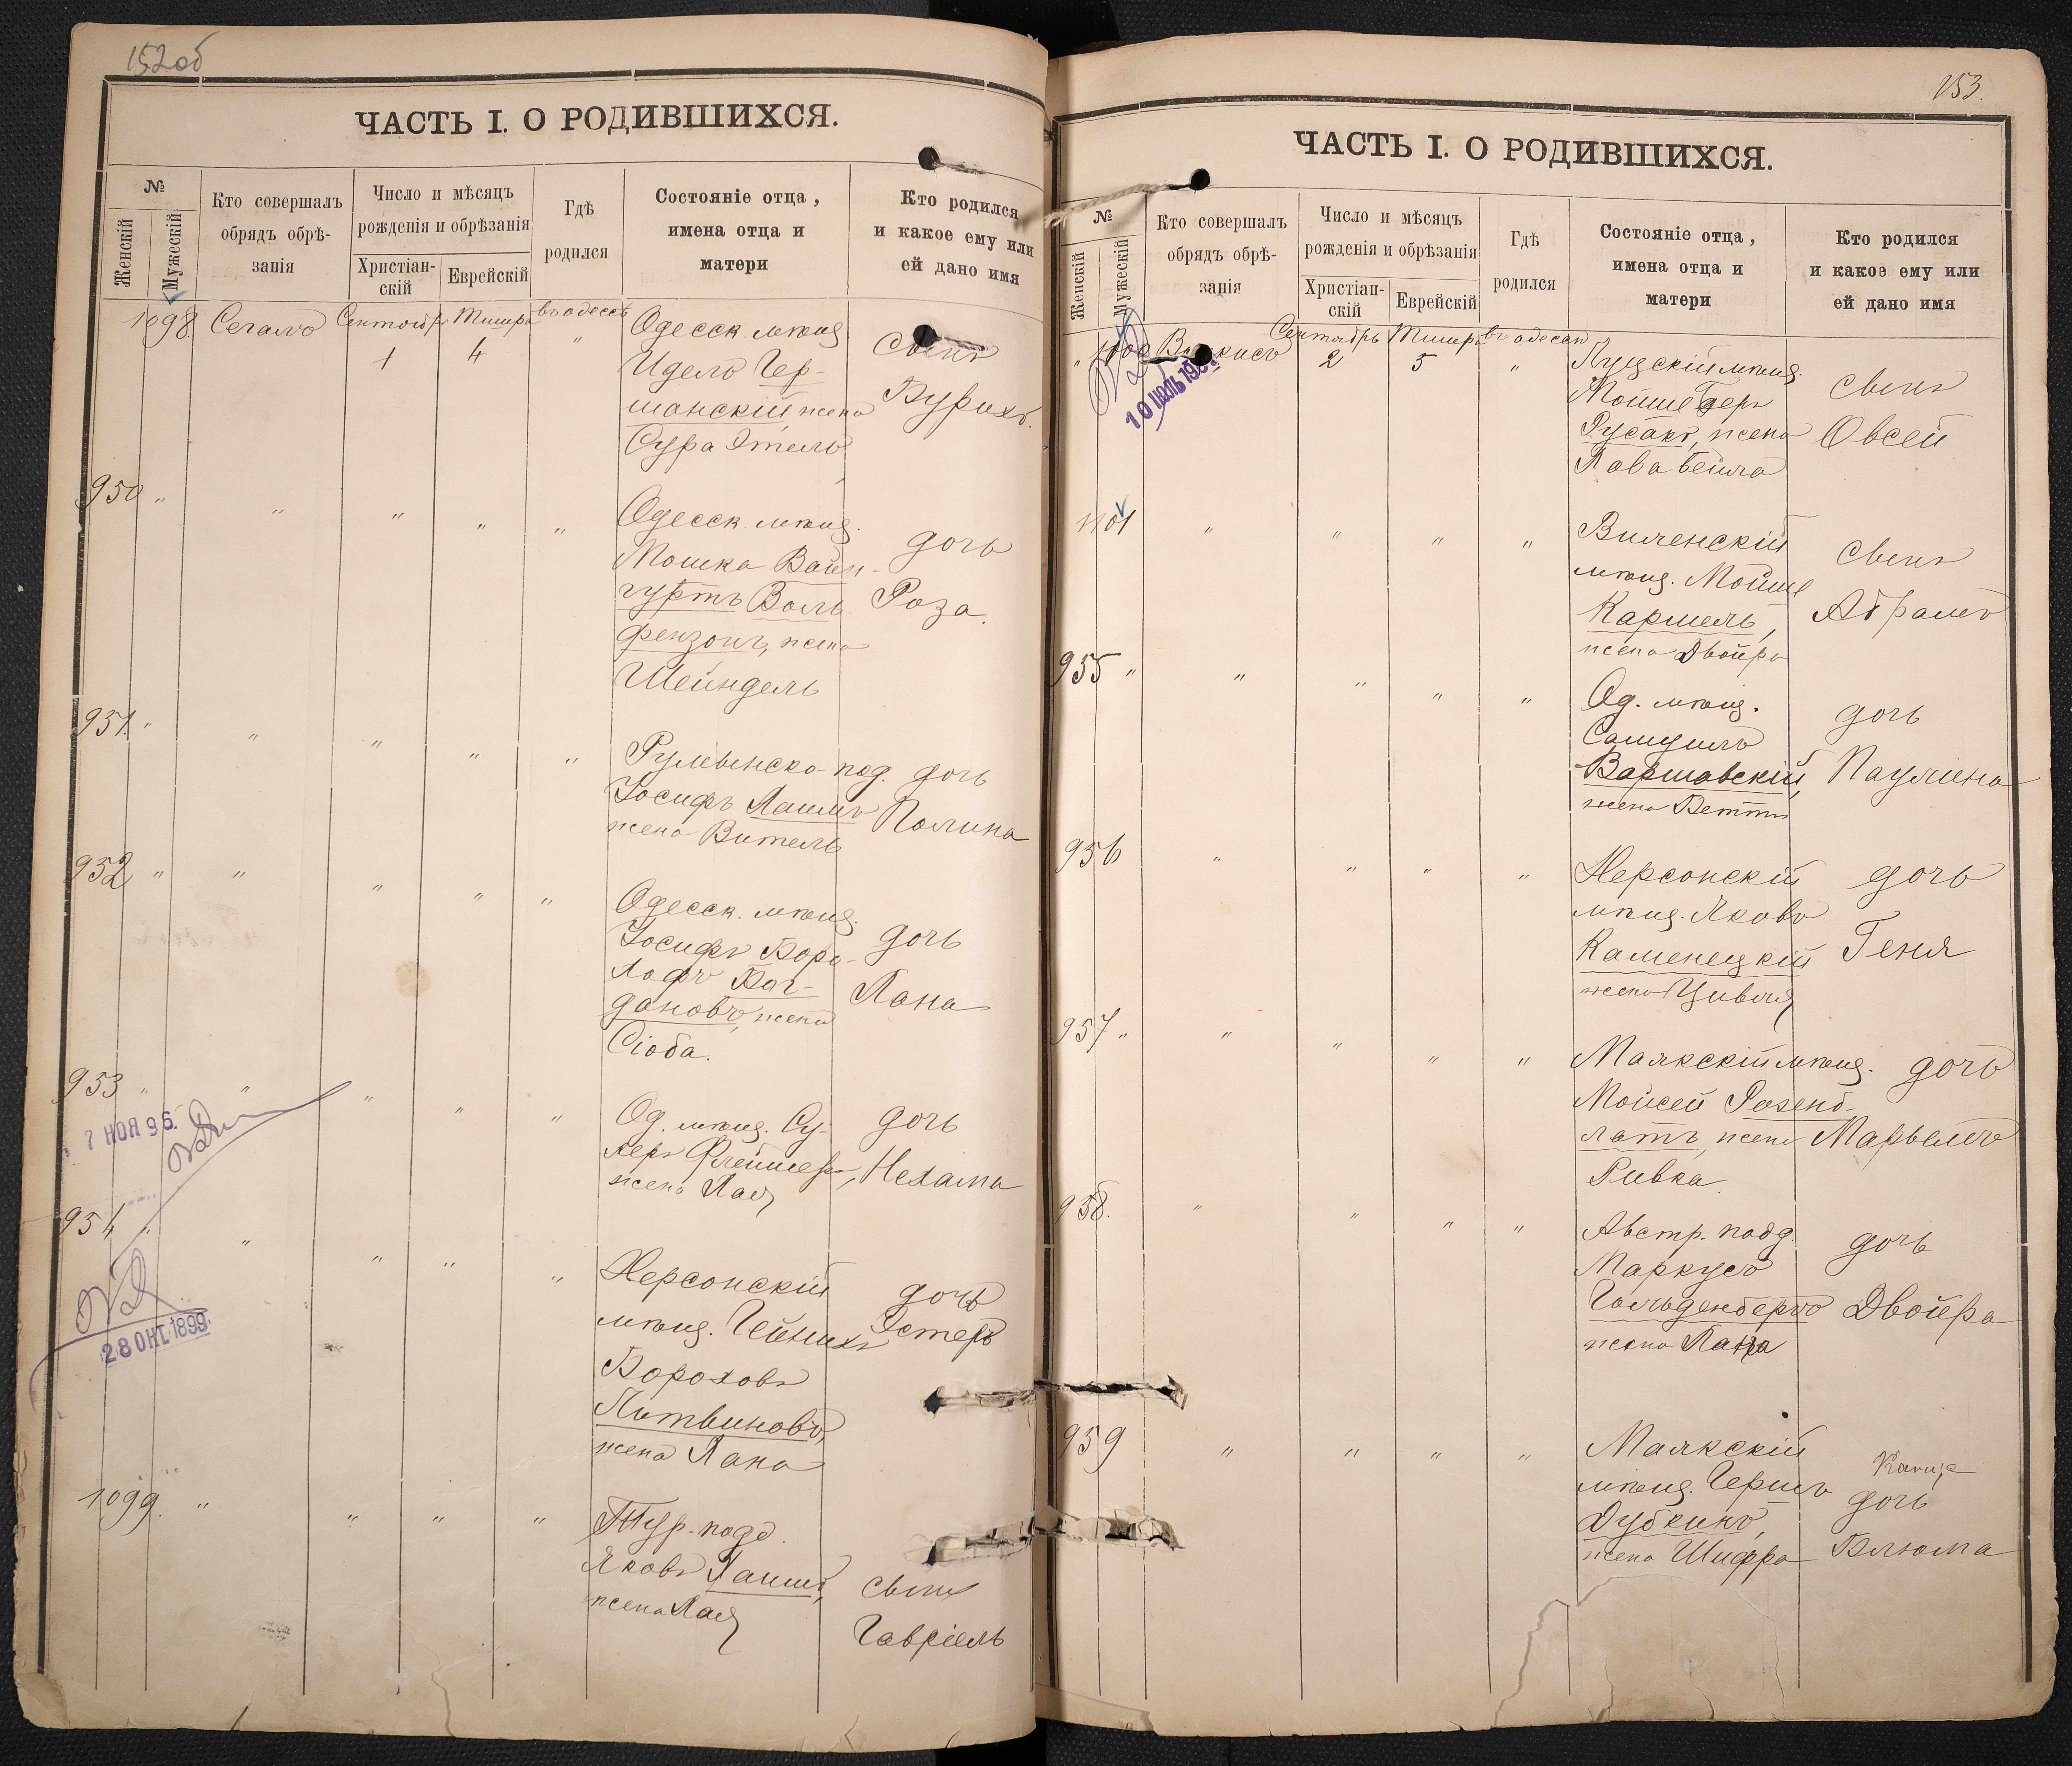 152об
ЧАСТЬ I. О РОДИВШИХСЯ.
№
Женскій
Мужескій
Кто совершалъ
обрядъ обрѣ-
занія
Число и мѣсяцъ
рожденія и обрѣзанія
Христіан-
скій
Еврейскій
Гдѣ
родился
Состояніе отца,
имена отца и
матери
Кто родился
и какое ему или
ей дано имя
1098 Сегалъ Сентябрь Тишри въ Одессѣ
1 4 "
Одесск. мѣщ.
Идель Гер-
шанскій, жена
Сура Этель
сынъ
Бурихъ.
950 " " " " "
Одесск. мѣщ.
Мошка Вайн-
гуртъ Воль
фензонъ, жена
Шейндель
дочь
Роза.
951. " " " " "
Румынско-под.
Іосифъ
жена Витель
дочь
Полина
952 " " " " "
Одесск. мѣщ.
Іосифъ Боро-
Бог-
дановъ, жена
Сіоба.
дочь
Хана
953 " " " " "
7 НОЯ 96.
Од. мѣщ. Су-
херъ Флейшеръ,
жена Хая
дочь
Нехама
954 " " " " "
28 ОКТ. 1899
Херсонскій
мѣщ. Гейнихъ
Бороховъ
Литвиновъ,
жена Хана
дочь
Эстеръ
1099. " " " "
Тур. подд.
Яковъ
жена Хая
сынъ
Гавріель
153.
ЧАСТЬ I. О РОДИВШИХСЯ.
№
Женскій
Мужескій
Кто совершалъ
обрядъ обрѣ-
занія
Число и мѣсяцъ
рожденія и обрѣзанія
Христіан-
скій
Еврейскій
Гдѣ
родился
Состояніе отца,
имена отца и
матери
Кто родился
и какое ему или
ей дано имя
" 1100 Сентябрь Тишри въ Одессѣ
2 5 "
10
Луцскій мѣщ.
Мойше Беръ
Русакъ, жена
Хава Бейла
сынъ
Овсей
1101 " " " "
Виленскій
мѣщ. Мойше
Кармель,
жена Двойра
сынъ
Абрамъ
955 " " " " "
Од. мѣщ.
Самуилъ
Варшавскій,
жена Бетти
дочь
Паулина
956 " " " "
Херсонскій
мѣщ. Яковъ
Каменецкій
жена Цивья
дочь
Геня
957 " " " " "
Маякскій мѣщ.
Мойсей Розенб-
латъ, жена
Ривка.
дочь
Марьемъ
958. " " " "
Австр. подд.
Маркусъ
Гольденбергъ
жена Хана
дочь
Двойра
959 " " " "
Маякскій
мѣщ. Гершъ
Дубкинъ,
жена Шифра
дочь
Блюма